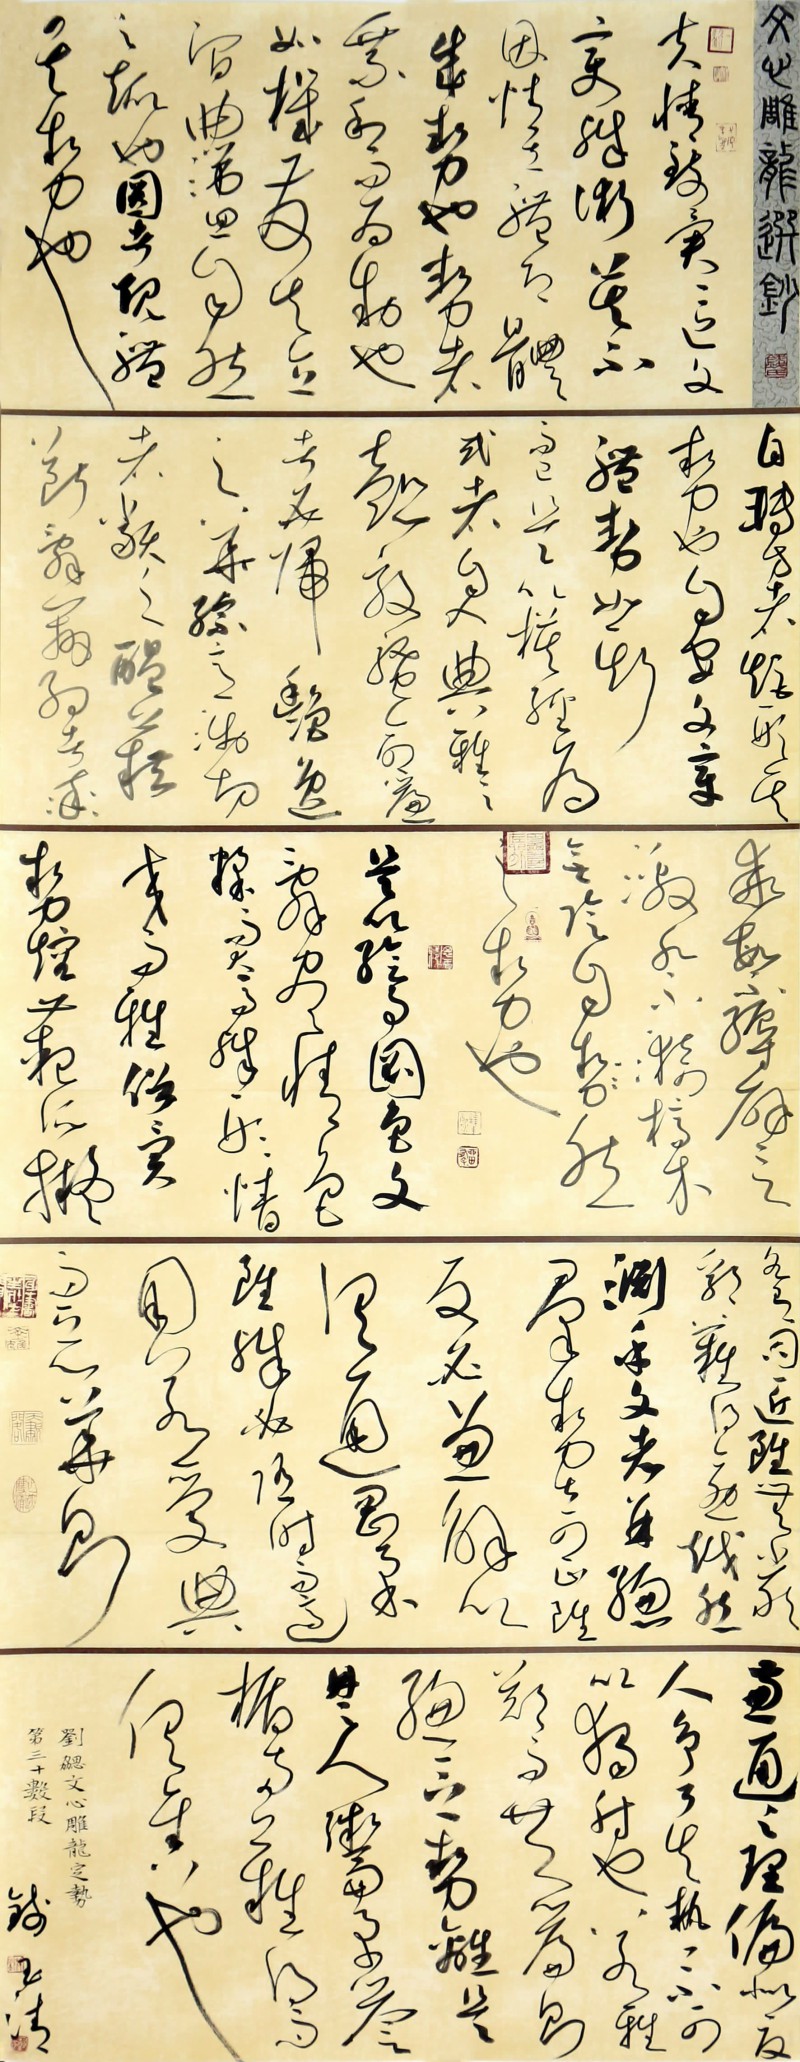 文心雕龍選鈔
夫情致異區文
變殊術莫不
因情立體即體
成勢也勢者
乘利而為制也
如機發矢直
澗曲湍回自然
之趣也圓者規體
其勢也
自轉方者矩形其
勢也自安文章
體勢如斯
而已是以模經為
式者自入典雅之
懿效騷命篇
者必歸艷逸
之華綜意淺切
者類乏醞藉
斷辭辨約者率
乖繁縟譬
激水不漪槁木
無陰自然
之勢也
是以繪事圖色文
辭盡情色
糅而犬馬殊形情
交而雅俗異
勢鎔範所擬
各有司匠雖無嚴
郛難得踰越然
淵乎文者並總
群勢奇正雖
反必兼解以
俱通剛柔
雖殊必隨時而適
用若愛典
而惡華則
兼通之理偏似夏
人爭弓矢執一不可
以獨射也若雅
鄭而共篇則
總一勢離是
楚人鬻矛譽
楯兩難得而
俱售也
劉勰文心雕龍定勢
第三十數段